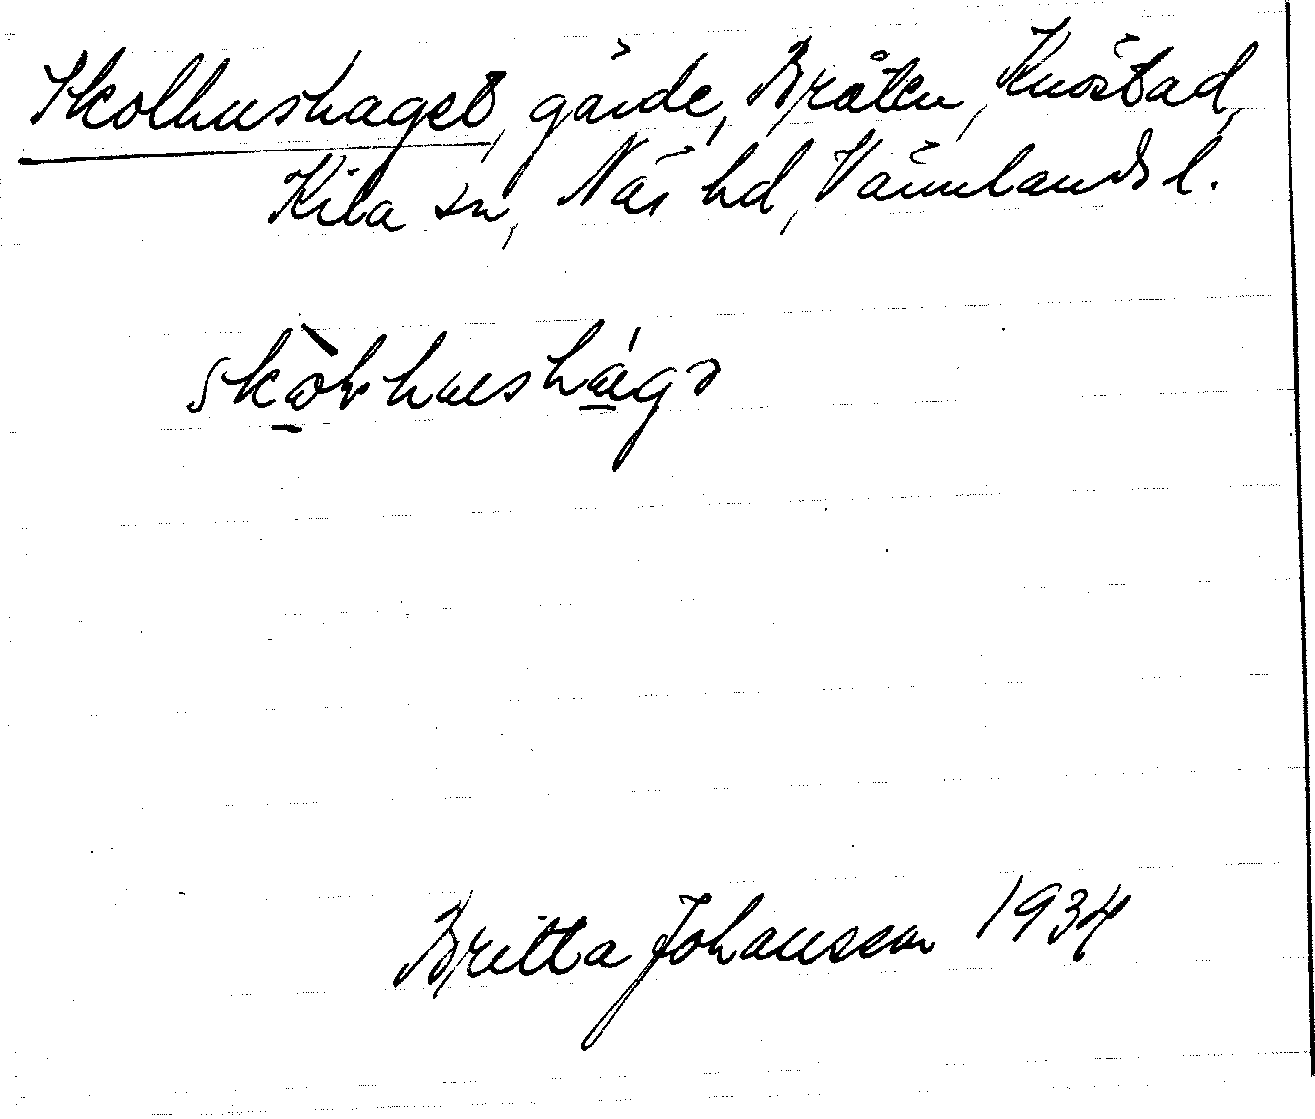 Skolhushaget, gärde, Bråten, Knöstad,
Kila sn, Näs hd, Värmlands l.
skòlhushágə
Britta Johansson 1934